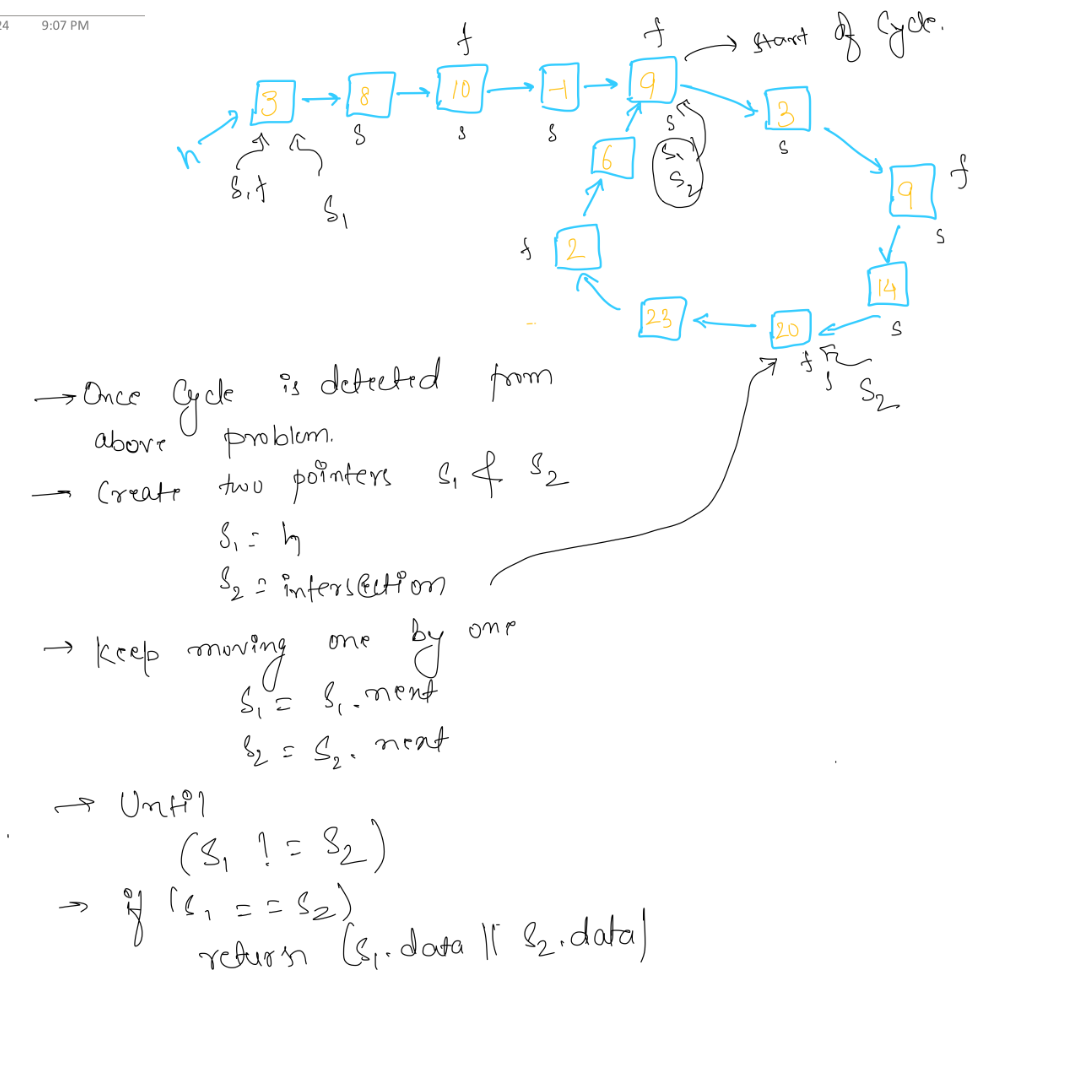 24 9:07 PM
f f → start of Cycle.
3 → 8 → 10 → -1 → 9
3
h s s s s s
6 s1
s,f s2 9 f
s1 s
f 2 14
23 20 s
f s2
s
→ Once Cycle is detected from
above problem.
→ Create two pointers s1 & s2
s1 = h
s2 = intersection
→ Keep moving one by one
s1 = s1.next
s2 = s2.next
→ Until
(s1 != s2)
→ if (s1 == s2)
return (s1.data || s2.data)